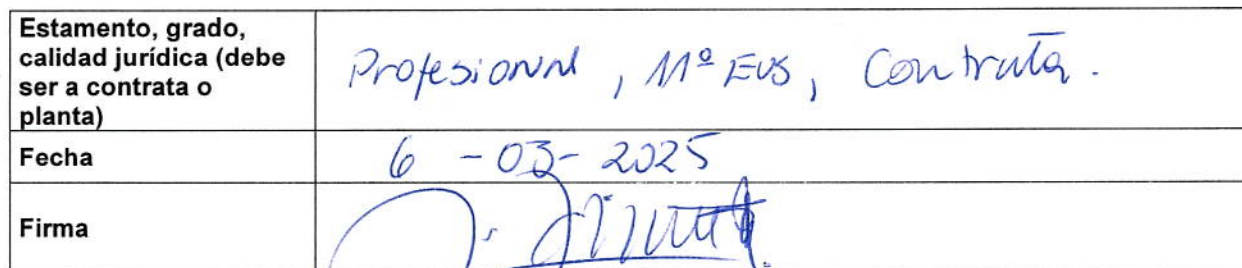 Estamento, grado,
calidad jurídica (debe
ser a contrata o
planta)
Profesional, 11º EUS, Contrata.
Fecha
6 -03- 2025
Firma